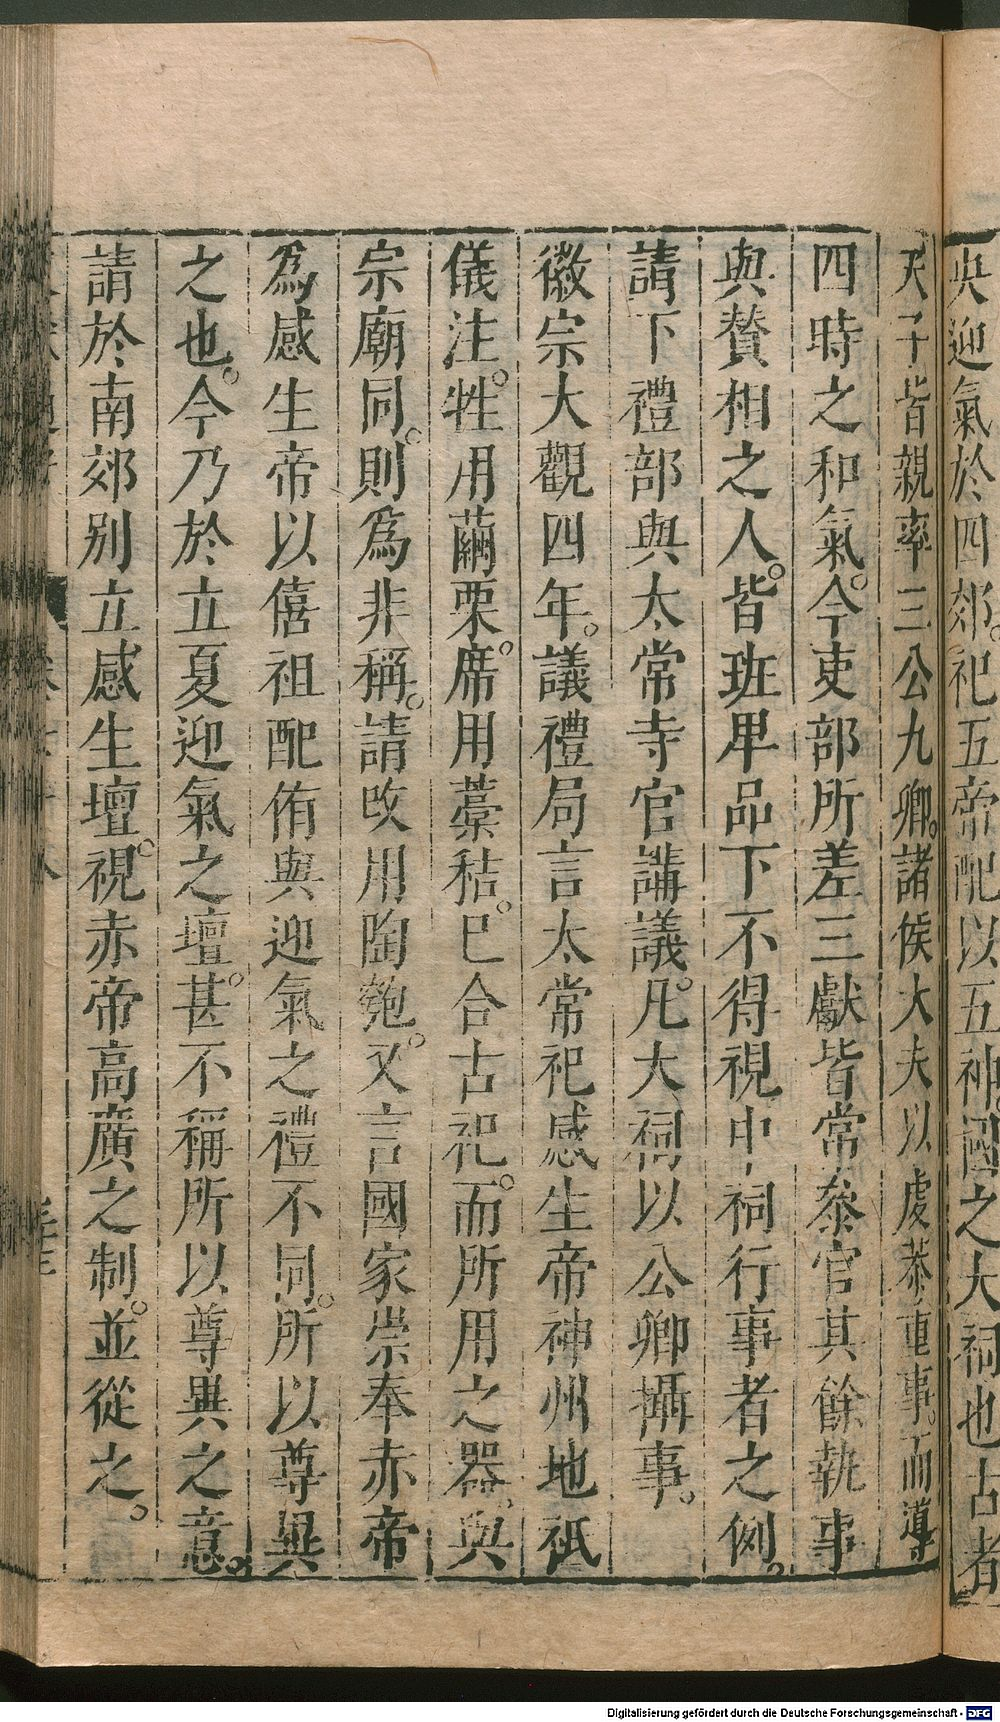 央迎氣於四郊。祀五帝配以五神。國之大祠也古者
天子皆親率三公九卿。諸侯大夫以虔恭重事。而導
四時之和氣。今吏部所差三獻皆常叅官其餘執事
與賛相之人。皆班卑品下不得視中祠行事者之例。
請下禮部與太常寺官講議。凡大祠以公卿攝事。
徽宗大觀四年。議禮局言太常祀感生帝神州地祇
儀注。牲用繭栗。席用藁秸。巳合古祀。而所用之器。與
宗廟同。則爲非稱。請改用陶匏。又言國家崇奉赤帝
爲感生帝以僖祖配侑與迎氣之禮不同。所以尊異
之也。今乃於立夏迎氣之壇。甚不稱所以尊異之意。
請於南郊別立感生壇。視赤帝高廣之制。並從之。
Digitalisierung gefördert durch die Deutsche Forschungsgemeinschaft - DFG